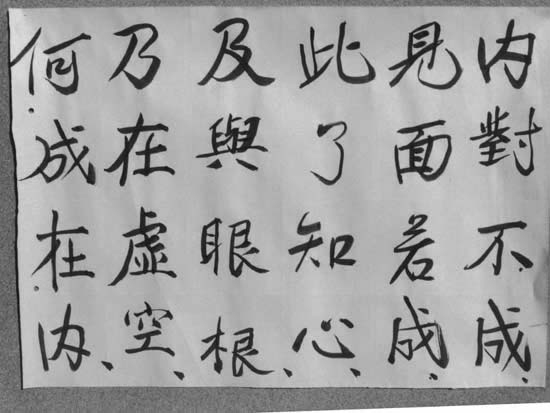 内對不成、
見面若成、
此了知心、
及與眼根、
乃在虛空、
何成在内、